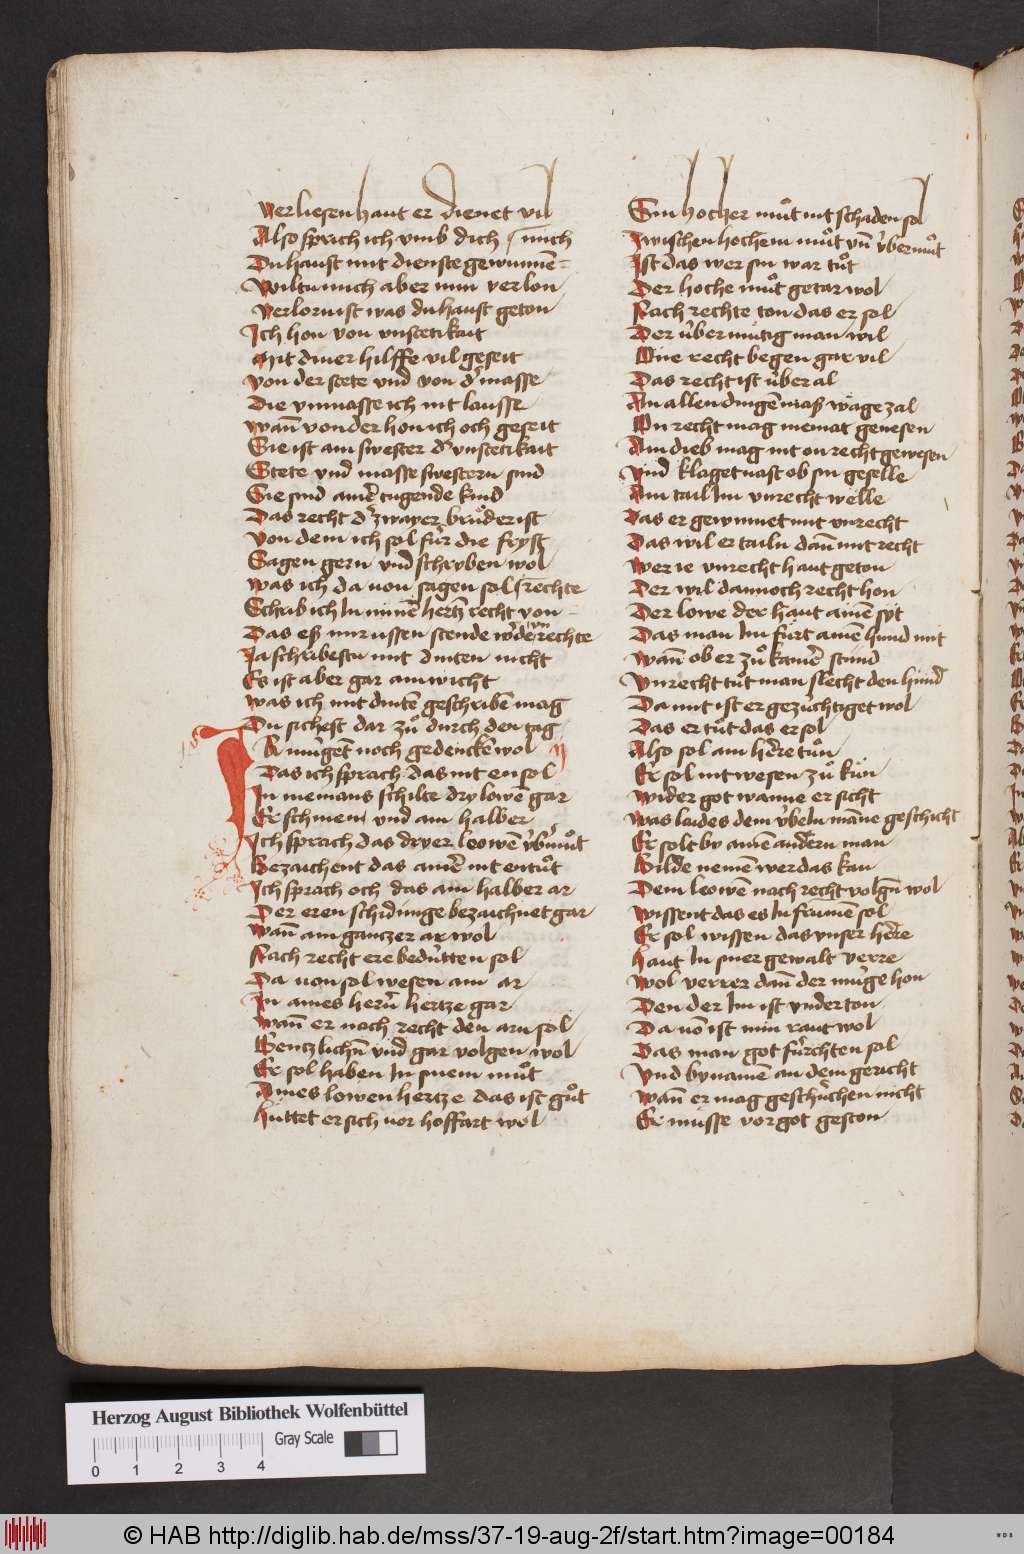 Verliesen haut er dienet vil
Also sprich ich vmb dich / mich
Du haust mit dienste gewunnē
Wiltu mich aber nun verlon
Verlorn ist was du haust geton
Ich hon von vnstetikait
Mit diner hilffe vil geseit
Von der stete vnd von d' masse
Die vnmasse ich nit lausse
Wañ von der hon ich och geseit
Sie ist am swester d' vnstetikait
Stete vnd masse swestern sind
Sie sind ainer tugende kind
Das recht d' zwayer brůder ist
Von dem ich sol für die fryst
Sagen gern vnd schryben wol
Was ich da von sagen sol / rechte
Schrib ich In minē hertz recht von
Das eß mir ussen stende w'de vnrechte
Ja schribestu mit dinten nicht
Es ist aber gar ain wicht
Was ich mit dintē geschribē mag
Du sichest dar zů durch den tag
Ir mu̇get noch gedencken wol
Das ich sprach das nit en sol
In niemans schilte dry lowē gar
Er schinen vnd ain halber
Ich sprach das dryer leowē v̇b'můt
Bezaichent das ainē nit entůt
Ich sprach och das ain halber ar
Der eren schidunge bezaichnet gar
Wañ ain gantzer ar wol
Nach recht ere bedütten sol
Da von sol wesen ain ar
In aines herñ hertze gar
Wañ er nach recht den arn sol
Gentzlichñ vnd gar volgen wol
Er sol haben In sinem můt
Aines lowen hertze das ist gůt
Hüttet er sich vor hoffart wol
Sin hocher můt nit schaden sol
Zwischen hochem můt vñ v̇bermůt
Ist das wer sin war tůt
Der hoche můt getar wol
Nach rechte ton das er sol
Der übermütig man wil
One recht begen gar vil
Das recht ist über al
An allen dingē maß wäge zal
On recht mag niemat genesen
Ain dieb mag nit on recht gewesen
Vnd klaget vast ob sin geselle
Ain tail Im vnrecht welle
Das er gewinnet mit vnrecht
Das wil er tailn dañ mit recht
Wer ie vnrecht haut geton
Der wil dannoch recht hon
Der lowe der haut ainē syt
Das man Im fürt ainē hund mit
Wañ ob er zů kainer stund
Vnrecht tůt man slecht den hund
Da mit ist er gezüchtiget wol
Das er tůt das er sol
Also sol ain herre tůn
Er sol nit wesen zů kün
Wider got wanne er sicht
Was laides dem v̇beln manne geschicht
Er solt by ainē andern man
Bilde nemē wer das kan
Dem leowē nach recht volgñ wol
Wissent das es In frumē sol
Er sol wissen das vnser herre
Haut In siner gewalt verre
Wol verrer dañ der müge hon
Den der Im ist vnderton
Da vō ist min raut wol
Das man got fürchten sol
Vnd by namē an dem gericht
Wañ er mag geschüchen nicht
Er müsse vor got geston
Herzog August Bibliothek Wolfenbüttel
Gray Scale
0 1 2 3 4
© HAB http://diglib.hab.de/mss/37-19-aug-2f/start.htm?image=00184